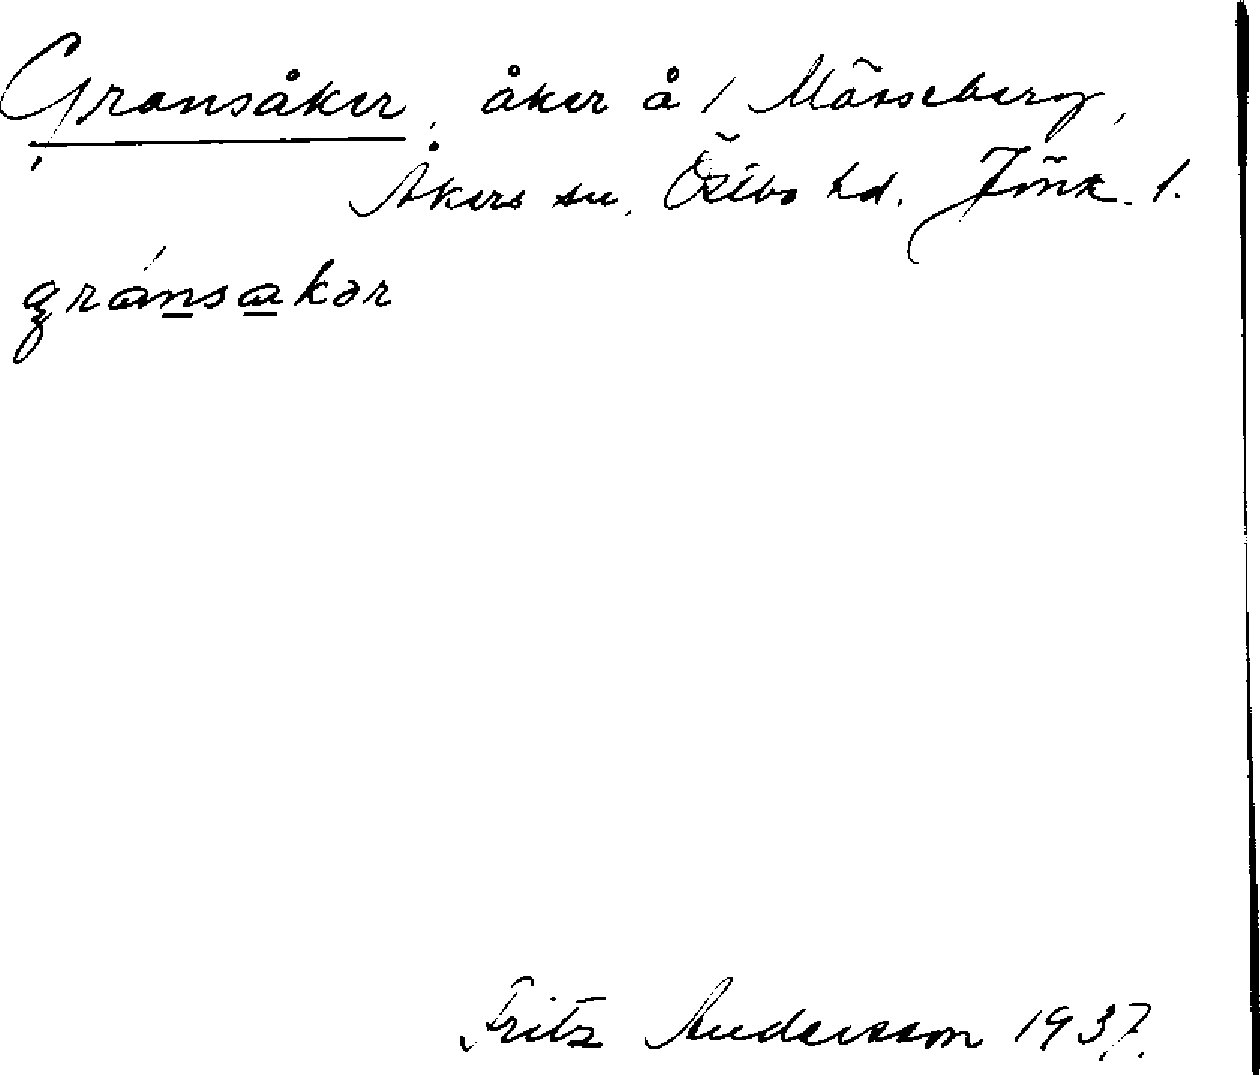 Gransåker, åker å 1 Mässeberg,
Åkers sn, Östbo hd. Jönk. l.
gránsakər
Fritz Andersson 1937.